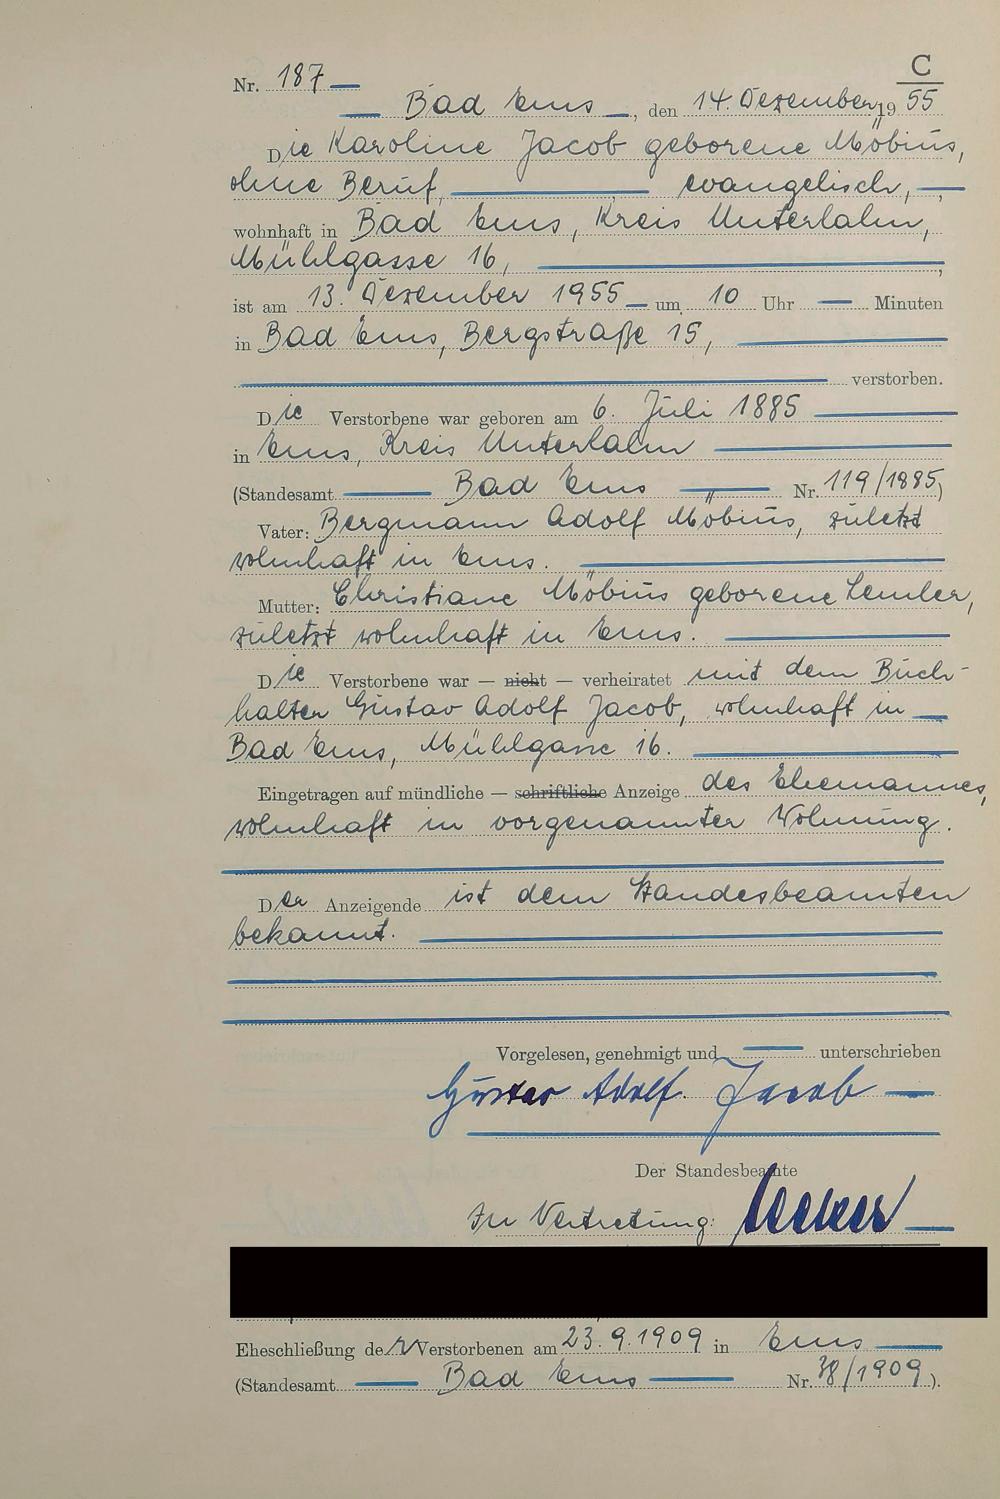 C
Nr. 187
Bad Ems, den 14. Dezember 19 55
Die Karoline Jacob geborene Möbius,
ohne Beruf, evangelisch,
wohnhaft in Bad Ems, Kreis Unterlahn,
Mühlgasse 16,
ist am 13. Dezember 1955 um 10 Uhr Minuten
in Bad Ems, Bergstraße 15,
verstorben.
Die Verstorbene war geboren am 6. Juli 1885
in Ems, Kreis Unterlahn
(Standesamt Bad Ems Nr. 119/1885)
Vater: Bergmann Adolf Möbius, zuletzt
wohnhaft in Ems.
Mutter: Christiane Möbius geborene Lemler,
zuletzt wohnhaft in Ems.
Die Verstorbene war — nicht — verheiratet mit dem Buch-
halter Gustav Adolf Jacob, wohnhaft in
Bad Ems, Mühlgasse 16.
Eingetragen auf mündliche — schriftliche Anzeige des Ehemannes,
wohnhaft in vorgenannter Wohnung.
Der Anzeigende ist dem Standesbeamten
bekannt.
Vorgelesen, genehmigt und unterschrieben
Gustav Adolf Jacob
Der Standesbeamte
In Vertretung:
Eheschließung der Verstorbenen am 23.9.1909 in Ems
(Standesamt Bad Ems Nr. 38/1909).